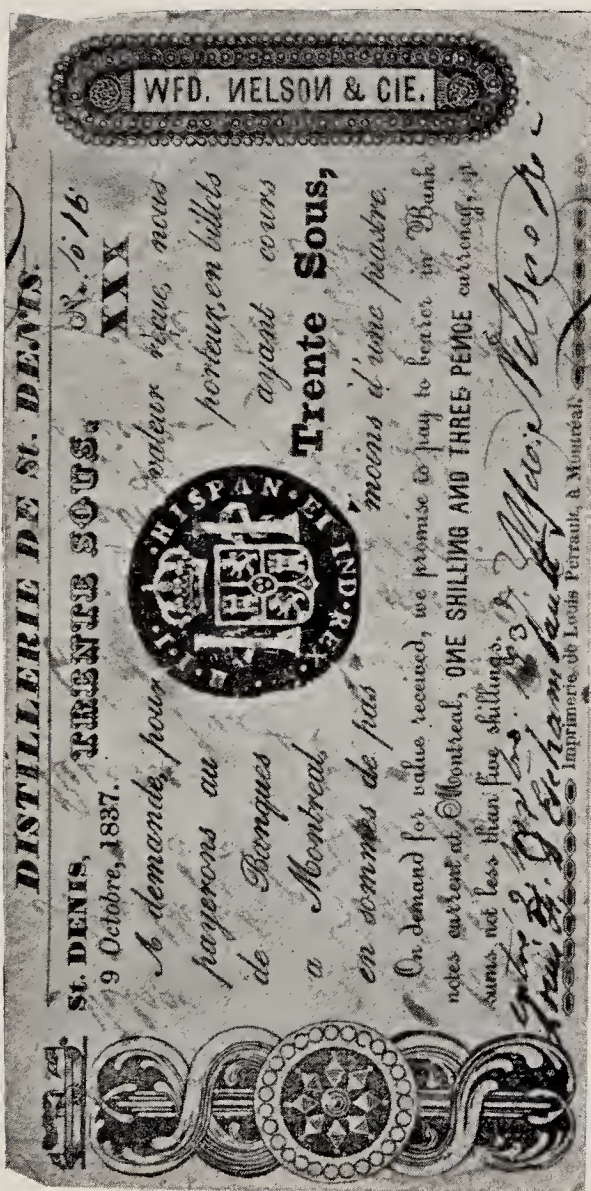 DISTILLERIE DE St. DENIS.
St. DENIS, TRENTE SOUS, No. 1616
9 Octobre, 1837. XXX
A demande, pour valeur reçue, nous
payerons au porteur, en billets
de Banques ayant cours
a Montreal, Trente Sous,
en sommes de pas moins d'une piastre.
On demand for value received, we promise to pay to bearer in Bank
notes current at Montreal, ONE SHILLING AND THREE PENCE currency, in
sums not less than five shillings.
Wfd. Nelson & Cie
Louis Deschambault
Imprimerie de Louis Perrault, à Montréal.
WFD. NELSON & CIE.
H·I·J· ·HISPAN·ET IND·REX·